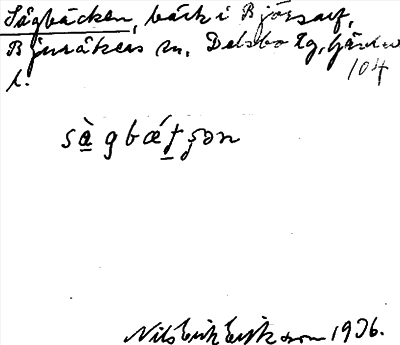 Sågbäcken, bäck i Björsarf,
Bjuråkers sn, Delsbo tg, Gävleb.
104
l.
sàgbǽtʂən
Nils Erik Eriksson 1936.